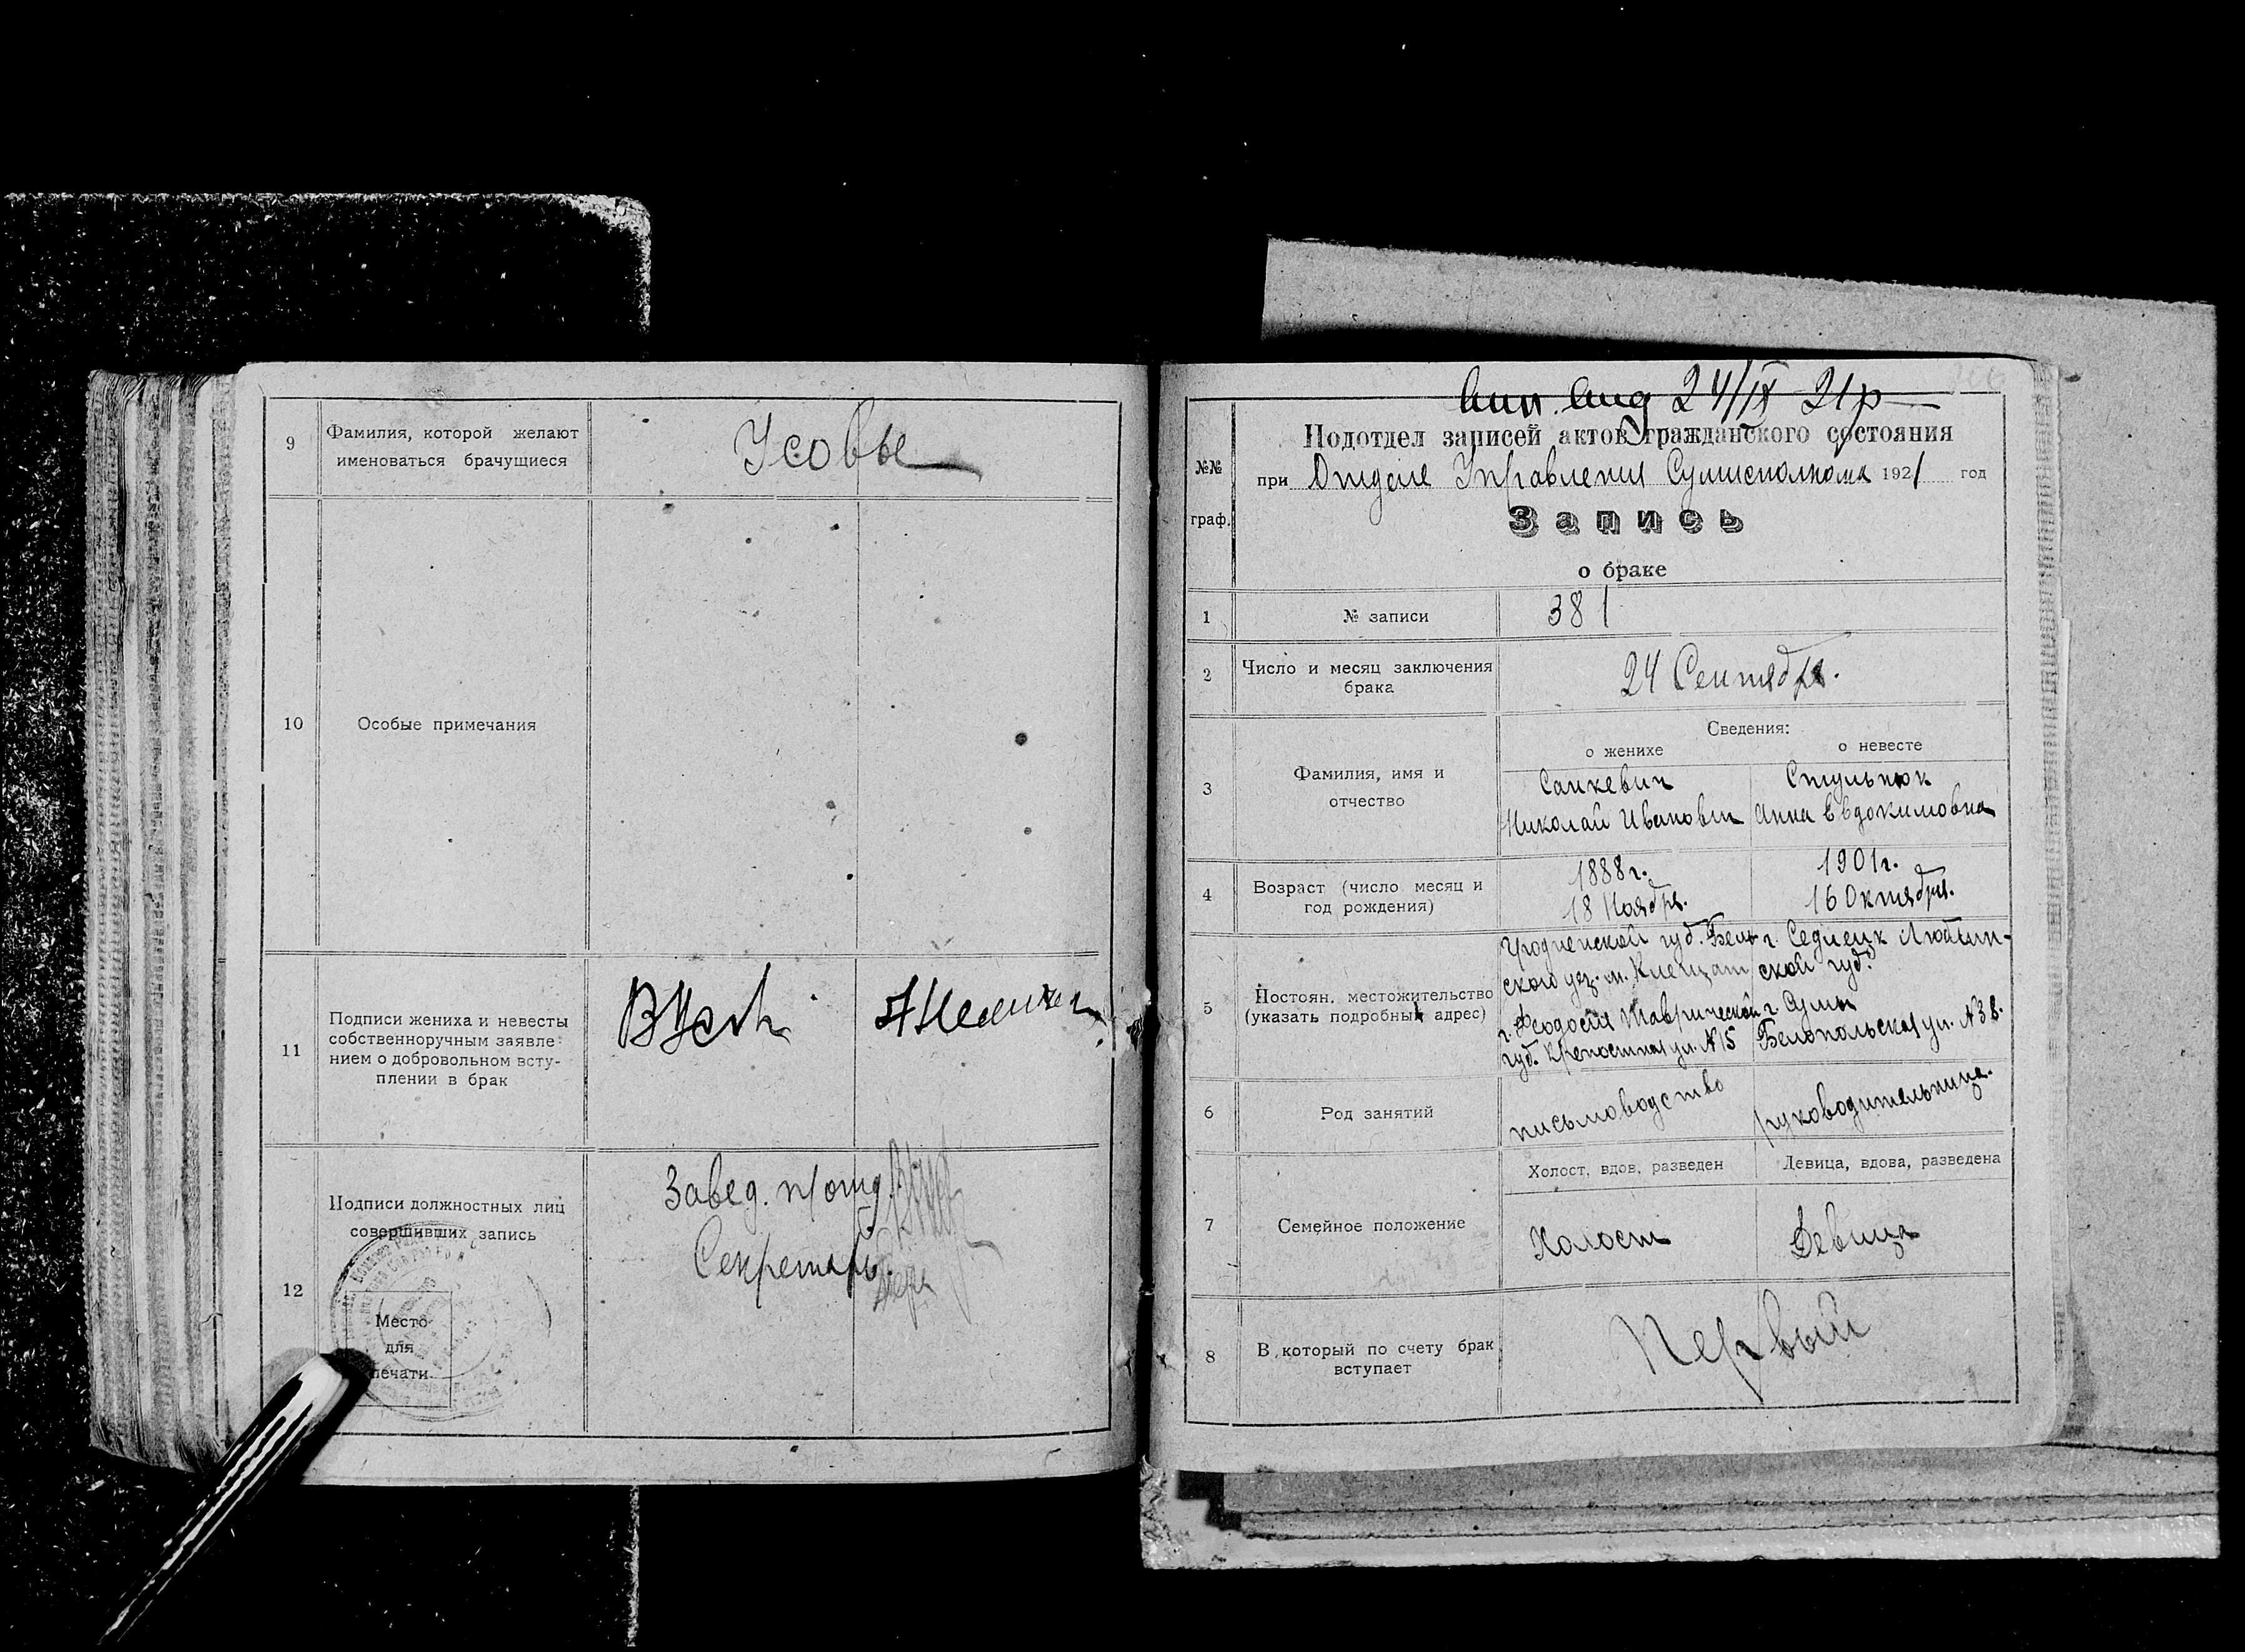 9
Фамилия, которой желают
именоваться брачущиеся
Усовы
10
Особые примечания
11
Подписи жениха и невесты
собственноручным заявле-
нием о добровольном всту-
плении в брак
12
Подписи должностных лиц
совершивших запись
Завед. п/отд.
Секретарь
Место
для
печати
24/IX 21р
№№
граф.
Подотдел записей актов гражданского состояния
при Отделе Управления Сумисполкома 1921 год
Запись
о браке
1
№ записи
381
2
Число и месяц заключения
брака
24 Сентября.
Сведения:
о женихе
о невесте
3
Фамилия, имя и
отчество
Санкевич
Николай Иванович
Стульнюк
Анна Евдокимовна
4
Возраст (число месяц и
год рождения)
1888 г.
18 Ноября.
1901 г.
16 Октября.
5
Постоян. местожительство
(указать подробный адрес)
Гродненской губ. Бель-
ского уез. м.
г. Феодосия Таврической
губ. Крепостная ул. №15
г. Седлецк Люблин-
ской губ.
г. Сумы
Белопольская ул. №38.
6
Род занятий
письмоводство
руководительница.
7
Семейное положение
Холост, вдов, разведен
Холост
Девица, вдова, разведена
Девица
8
В который по счету брак
вступает
Первый